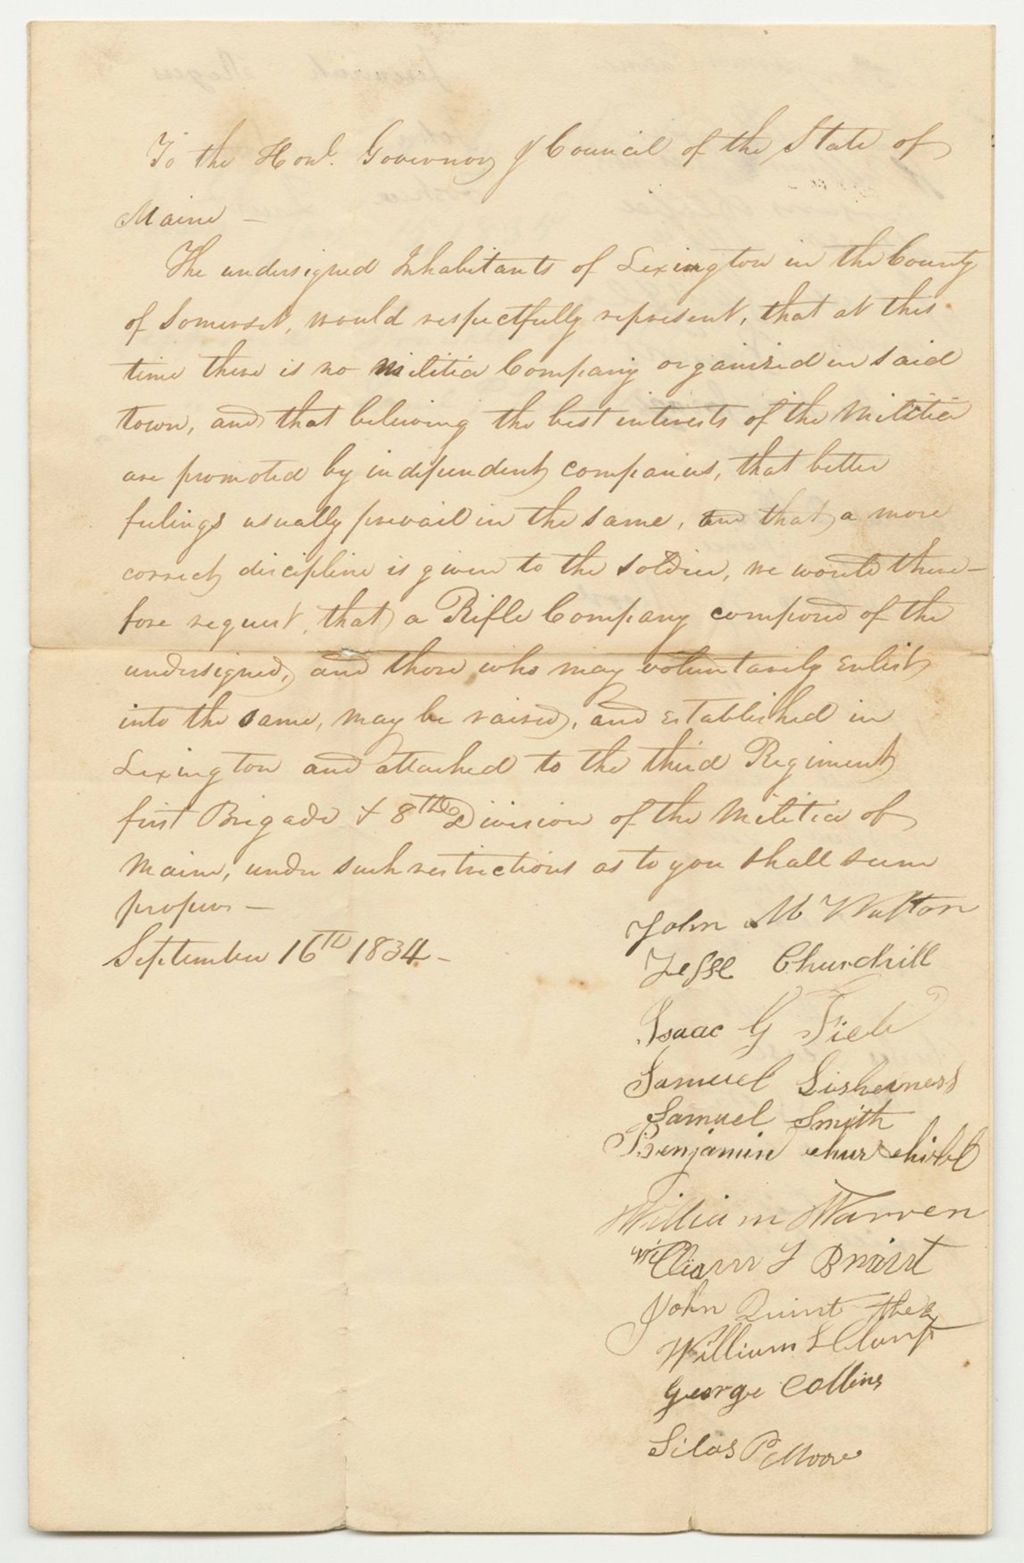 To the Honl. Governor & Council of the State of
Maine —
The undersigned Inhabitants of Lexington in the County
of Somerset, would respectfully represent, that at this
time there is no militia Company organized in said
town, and that believing the best interests of the Militia
are promoted by independent companies, that better
feelings usually prevail in the same, and that a more
correct discipline is given to the soldier, we would there-
fore request, that a Rifle Company composed of the
undersigned, and those who may voluntarily enlist
into the same, may be raised, and established in
Lexington and attached to the third Regiment
first Brigade & 8TH Division of the Militia of
Maine, under such restrictions as to you shall seem
proper —
September 16TH 1834 —
John M Walton
Jesse Churchill
Isaac G Field
Samuel Lisherness
Samuel Smith
Benjamin Churchill
William Warren
William F
John Quint the 2
William
George Collins
Silas P Moore